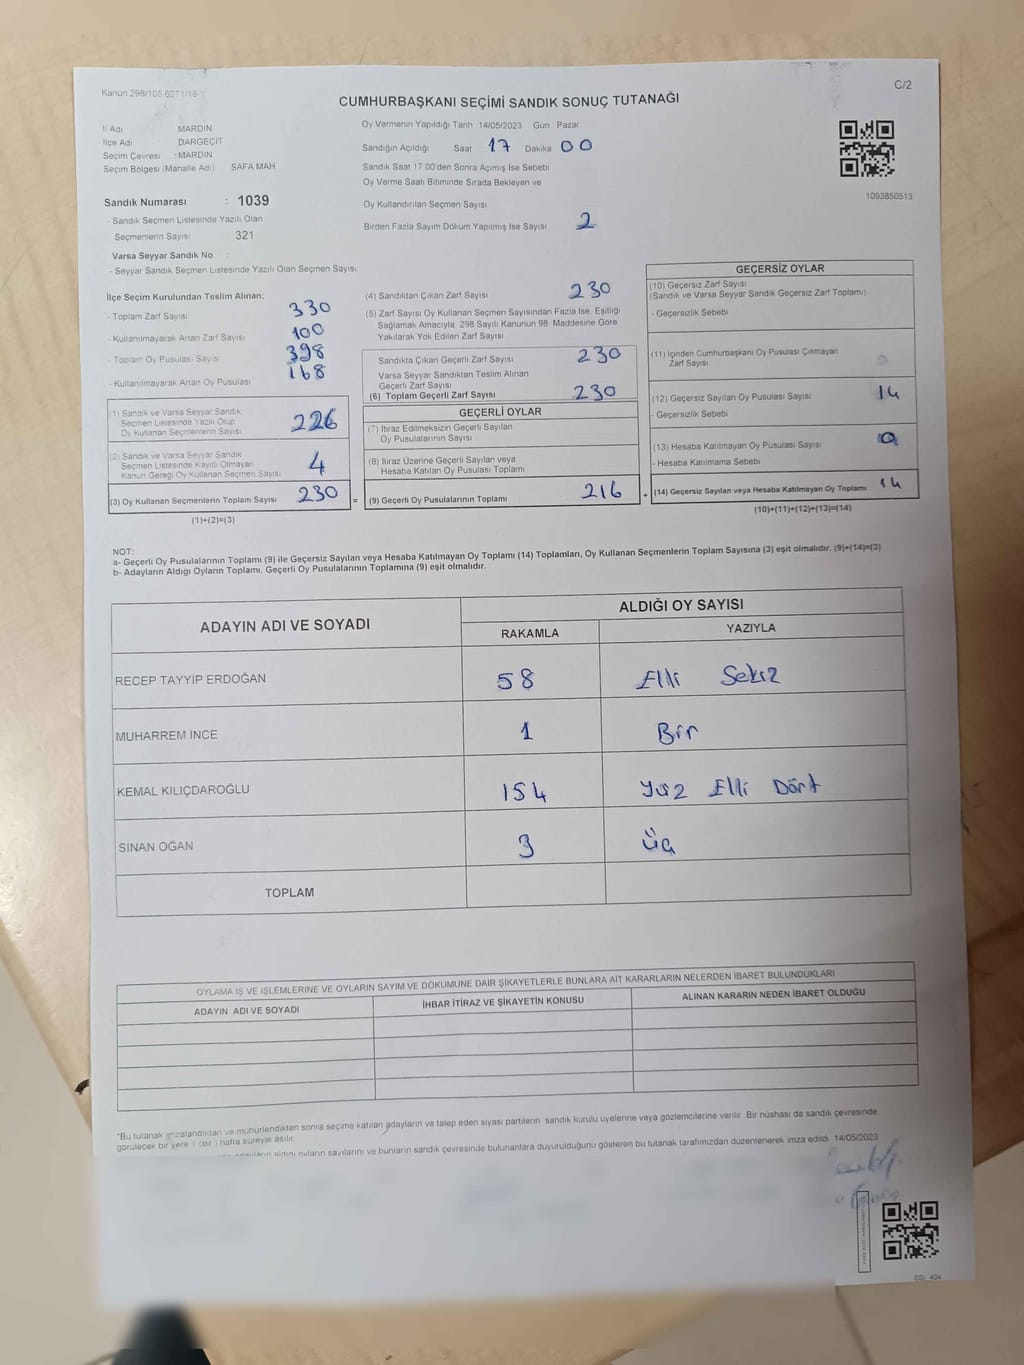 Kanun 298/105 6271/18-1
C/2
CUMHURBAŞKANI SEÇİMİ SANDIK SONUÇ TUTANAĞI
İl Adı MARDİN
İlçe Adı DARGEÇİT
Seçim Çevresi : MARDİN
Seçim Bölgesi (Mahalle Adı) SAFA MAH
Sandık Numarası : 1039
- Sandık Seçmen Listesinde Yazılı Olan
Seçmenlerin Sayısı 321
Varsa Seyyar Sandık No :
- Seyyar Sandık Seçmen Listesinde Yazılı Olan Seçmen Sayısı
Oy Vermenin Yapıldığı Tarih 14/05/2023 Gün Pazar
Sandığın Açıldığı Saat 17 Dakika 00
Sandık Saat 17:00'den Sonra Açımış İse Sebebi
Oy Verme Saati Bitiminde Sırada Bekleyen ve
Oy Kullandırılan Seçmen Sayısı
Birden Fazla Sayım Döküm Yapılmış İse Sayısı 2
1093850513
İlçe Seçim Kurulundan Teslim Alınan;
- Toplam Zarf Sayısı 330
- Kullanılmayarak Artan Zarf Sayısı 100
- Toplam Oy Pusulası Sayısı 398
- Kullanılmayarak Artan Oy Pusulası 168
(1) Sandık ve Varsa Seyyar Sandık
Seçmen Listesinde Yazılı Olup
Oy Kullanan Seçmenlerin Sayısı 226
(2) Sandık ve Varsa Seyyar Sandık
Seçmen Listesinde Kayıtlı Olmayan
Kanun Gereği Oy Kullanan Seçmen Sayısı 4
(3) Oy Kullanan Seçmenlerin Toplam Sayısı 230 =
(1)+(2)=(3)
(4) Sandıktan Çıkan Zarf Sayısı 230
(5) Zarf Sayısı Oy Kullanan Seçmen Sayısından Fazla İse, Eşitliği
Sağlamak Amacıyla, 298 Sayılı Kanunun 98. Maddesine Göre
Yakılarak Yok Edilen Zarf Sayısı
Sandıkta Çıkan Geçerli Zarf Sayısı 230
Varsa Seyyar Sandıktan Teslim Alınan
Geçerli Zarf Sayısı
(6) Toplam Geçerli Zarf Sayısı 230
GEÇERLİ OYLAR
(7) İtiraz Edilmeksizin Geçerli Sayılan
Oy Pusulalarının Sayısı
(8) İtiraz Üzerine Geçerli Sayılan veya
Hesaba Katılan Oy Pusulası Toplamı
(9) Geçerli Oy Pusulalarının Toplamı 216 +
GEÇERSİZ OYLAR
(10) Geçersiz Zarf Sayısı
(Sandık ve Varsa Seyyar Sandık Geçersiz Zarf Toplamı)
- Geçersizlik Sebebi
(11) İçinden Cumhurbaşkanı Oy Pusulası Çıkmayan
Zarf Sayısı 0
(12) Geçersiz Sayılan Oy Pusulası Sayısı 14
- Geçersizlik Sebebi
(13) Hesaba Katılmayan Oy Pusulası Sayısı
- Hesaba Katılmama Sebebi
(14) Geçersiz Sayılan veya Hesaba Katılmayan Oy Toplamı 14
(10)+(11)+(12)+(13)=(14)
NOT:
a- Geçerli Oy Pusulalarının Toplamı (9) ile Geçersiz Sayılan veya Hesaba Katılmayan Oy Toplamı (14) Toplamları, Oy Kullanan Seçmenlerin Toplam Sayısına (3) eşit olmalıdır. (9)+(14)=(3)
b- Adayların Aldığı Oyların Toplamı, Geçerli Oy Pusulalarının Toplamına (9) eşit olmalıdır.
ADAYIN ADI VE SOYADI ALDIĞI OY SAYISI
RAKAMLA YAZIYLA
RECEP TAYYİP ERDOĞAN 58 Elli Sekiz
MUHARREM İNCE 1 Bir
KEMAL KILIÇDAROĞLU 154 Yüz Elli Dört
SİNAN OĞAN 3 Üç
TOPLAM
OYLAMA İŞ VE İŞLEMLERİNE VE OYLARIN SAYIM VE DÖKÜMÜNE DAİR ŞİKAYETLERLE BUNLARA AİT KARARLARIN NELERDEN İBARET BULUNDUKLARI
ADAYIN ADI VE SOYADI İHBAR İTİRAZ VE ŞİKAYETİN KONUSU ALINAN KARARIN NEDEN İBARET OLDUĞU
*Bu tutanak imzalandıktan ve mühürlendikten sonra seçime katılan adayların ve talep eden siyasi partilerin sandık kurulu üyelerine veya gözlemcilerine verilir. Bir nüshası da sandık çevresinde
görülecek bir yere 1 (bir) hafta süreyle asılır.
aldığı oyların sayılarını ve bunların sandık çevresinde bulunanlara duyurulduğunu gösteren bu tutanak tarafımızdan düzenlenerek imza edildi. 14/05/2023